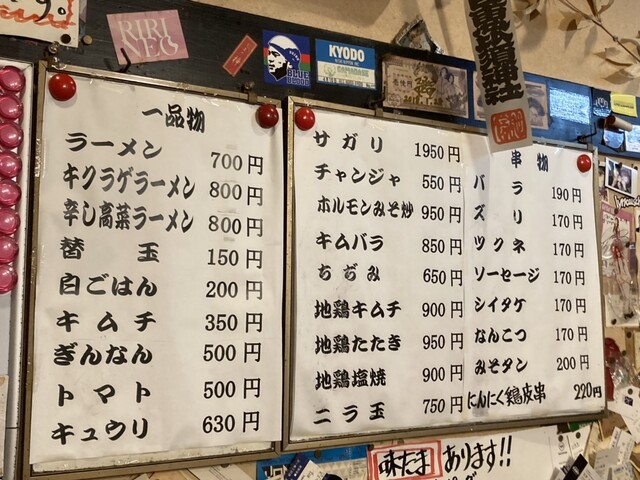 RIRI
NEO
BLUE
KYODO
一品物
ラーメン 700円
キクラゲラーメン 800円
辛し高菜ラーメン 800円
替玉 150円
白ごはん 200円
キムチ 350円
ぎんなん 500円
トマト 500円
キュウリ 630円
サガリ 1950円
チャンジャ 550円
ホルモンみそ炒 950円
キムバラ 850円
ちぢみ 650円
地鶏キムチ 900円
地鶏たたき 950円
地鶏塩焼 900円
ニラ玉 750円
串物
バラ 190円
ズリ 170円
ツクネ 170円
ソーセージ 170円
シイタケ 170円
なんこつ 170円
みそタン 200円
にんにく鶏皮串 220円
味たま あります!!